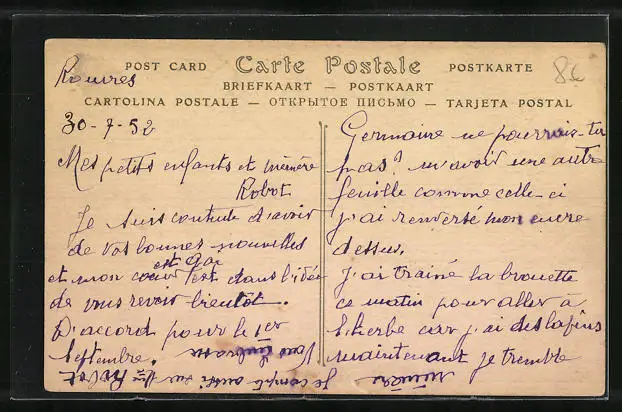 POST CARD Carte Postale POSTKARTE
BRIEFKAART — POSTKAART
CARTOLINA POSTALE — ОТКРЫТОЕ ПИСЬМО — TARJETA POSTAL
8€
Rouvres
30-7-52
Mes petits enfants et mémère
Robot
Je suis contente d'avoir
de vos bonnes nouvelles
est gai
et mon coeur est dans l'idée
de vous revoir bientôt.
D'accord pour le 1er
Septembre.
Vous embrasse
Je compte aussi sur Mme Robot
Germaine ne pourrais-tu
pas? m'avoir une autre
feuille comme celle-ci
j'ai renversé mon encre
dessus.
J'ai trainé la brouette
ce matin pour aller à
l'herbe car j'ai des lapins
maintenant je tremble
mémère